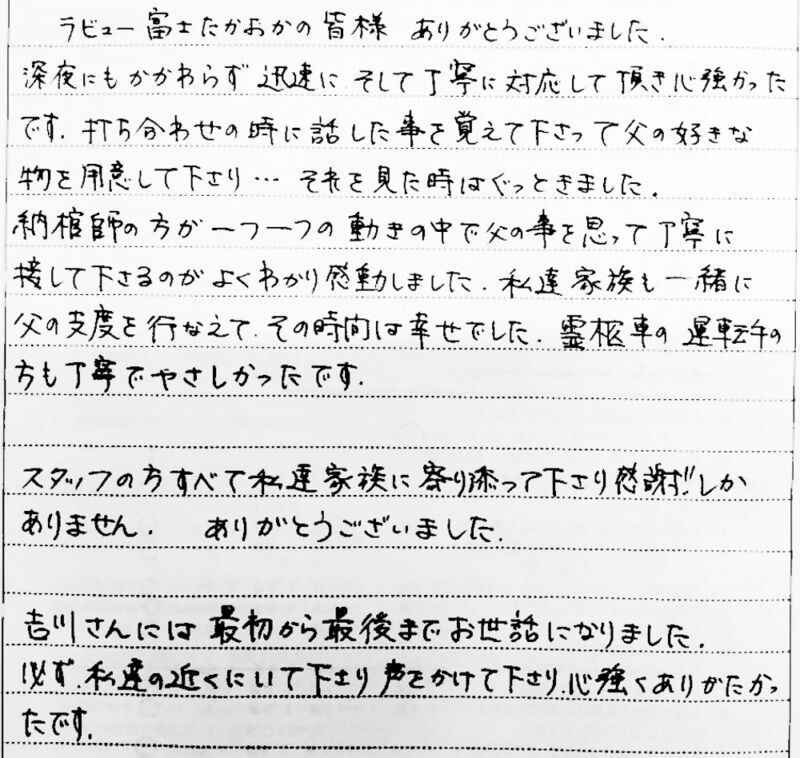 ラビュー富士たかおかの皆様 ありがとうございました.
深夜にもかかわらず 迅速に.そして丁寧に対応して頂き心強かった
です.打ち合わせの時に話した事を覚えて下さって父の好きな
物を用意して下さり… それを見た時はぐっときました.
納棺師の方が一つ一つの動きの中で父の事を思って丁寧に
接して下さるのがよくわかり感動しました.私達家族も一緒に
父の支度を行なえて.その時間は幸せでした.霊柩車の運転手の
方も丁寧でやさしかったです.
スタッフの方すべて私達家族に寄り添って下さり感謝!!しか
ありません. ありがとうございました.
吉川さんには最初から最後までお世話になりました.
必ず.私達の近くにいて下さり声をかけて下さり.心強くありがたかっ
たです.